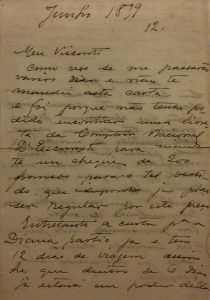 Junho 1899
12.
Meu Visconti
Como vês se me passaram
varios dias e não te
mandei esta carta
e foi porque não tenho po
dido encontrar uma
ta do Comptoir National
D'Escompte para manda
te um cheque de 200
francos para o tal
do que supponho já pode
ser regular por este
Entretanto a carta p.a
Diana partio ja e tem
12 dias de viagem
he que dentro de 6 dias
já estará em poder